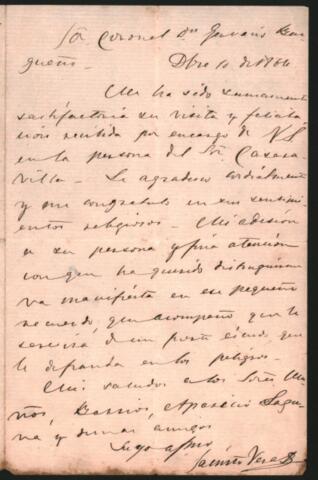 Sõr Coronel Dn Gervacio Bur
gueño.
Dbre 10 de 1864
Me ha sido sumamente
satisfactoria su visita y felicita
ción recibida por encargo de V. S.
en la persona del Sõr Casara
villa. Le agradesco cordialmente
y me congratulo en sus sentimi
entos religiosos. Mi adesion
a su persona y fina atencion
con que ha querido distinguirme
va manifiesta en ese pequeño
recuerdo, que acompaño que le
servirá de un fuerte escudo, que
le defienda en los peligros.
Mis saludos a los Sores Mu
ños, Barrios, Aparicio Lagu
na y demas amigos
Suyo afmo
Jacinto Vera